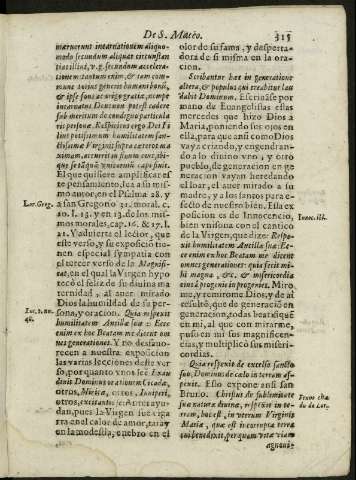 De S. Mateo.
315
mæruerunt incarnationem aliquo-
modo secundum aliquas circunstan
tias illius, v. g. secundum accelera-
tionem: tantum enim, & tam com-
mune totius generis humani bonũ,
& ipse fons & origo gratiæ, nempe
incarnatus Deus non potest cadere
sub meritum de condigno particula
ris personæ. Respicimus ergo Dei Fi
lius potissimum humilitatem sanc-
tissimæ Virginis supra cæteros ma
ximam, accurrit in sinum eius, ibi-
que se illaquò unicornis capiendũ.
El que quisiere amplificar es
te pensamiento, lea a los mis
mos autor, en el Psalma 28. y
Lor. Greg.
a san Gregorio 31. moral. c.
10. l. 13. y en 13. de los mis-
mos morales, cap. 16. & 17. l.
21. Y aduierta el lector, que
este verso, y su exposicion tie-
nen especial sympatia con
el tercer verso de la Magnifi-
cat, en el qual la Virgen hypo
tecò el feliz de su diuina ma
ternidad, al auer mirado
Dios la humildad de su per-
Luc. 1. nu.
48.
sona, y oracion. Quia respexit
humilitatem Ancillæ suæ: Ecce
enim ex hoc Beatam me dicent om
nes generationes. Y no desfauo-
recen a nuestra exposicion
las varias lecciones deste ver
so, porquanto vnos leẽ Exau
dienis Dominus orationem Cicadæ,
otros, Myricæ, otros, Inniperi,
otros, excitantis se: Antes ayu-
dan, pues la Virgen fue ciga
rra en el calor de amor, taray
en la modestia, enebro en el
olor de su fama, y desperta-
dora de si misma en la ora-
cion.
Scribantur hæc in generatione
altera, & populus qui creabitur lau
dabit Dominum. Escriuase por
mano de Euangelistas estas
mercedes que hizo Dios à
Maria, poniendo sus ojos en
ella, para que ansi como Dios
vaya crizado, y engendran-
do lo diuino vno, y otro
pueblo, se de generacion en ge
neracion vayan heredando
el loar, el auer mirado a su
madre, y a los santos para e-
fecto de nuestro bien. Esta ex
posicion es de Innocencio,
Innoc. iii.
bien vnisona con el cantico
de la Virgen, que dize: Respe-
xit humilitatem Ancillæ suæ: Ec-
ce enim ex hoc Beatam me dicent
omnes generationes: quia fecit mi-
hi magna, &c. & misericordia
eius à progenie in progenies. Miro-
me, y remirome Dios, y de aì
resultò, que de generacio en
generacion, todas beatisquẽ
en mi, al que con mirarme,
puso en mi sus magnificen-
cias, y multiplicò sus miseri-
cordias.
Quia respexit de excelso sancto
suo, Dominus de cælo in terram as-
pexit. Esto expone ansi san
Bruno. Christus de sublimitate
suæ naturæ diuinæ, respexit in te-
Fern. cha
du de Lor.
rram, hoc est, in uterum Virginis
Mariæ, quæ est in corrupta terra
quibenedixit, per quam vitæ viam
agnoue-